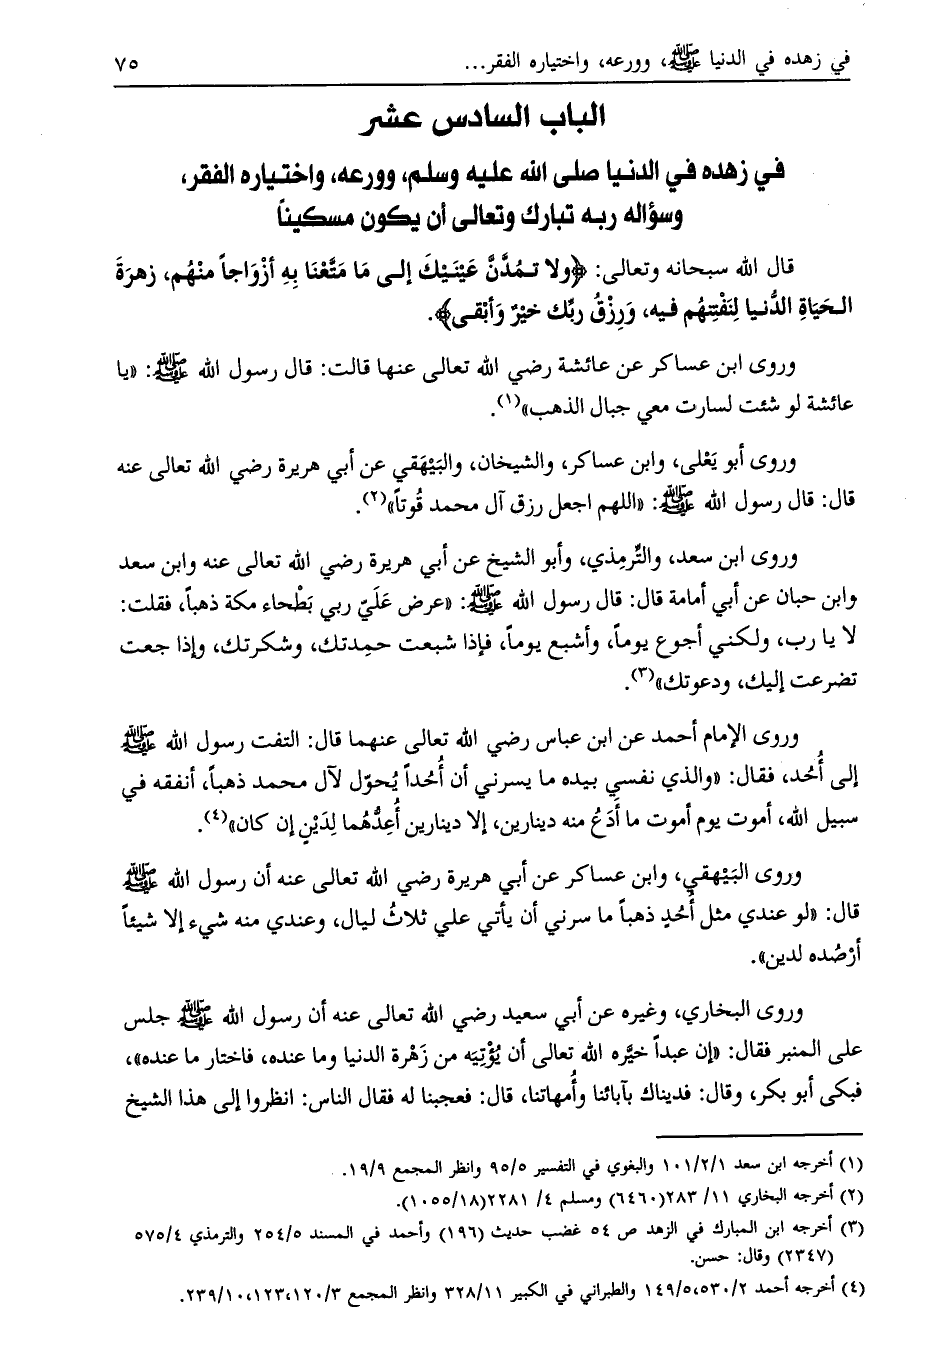 في زهده في الدنيا ﷺ، وورعه، واختياره الفقر... ٧٥
الباب السادس عشر
في زهده في الدنيا صلى الله عليه وسلم، وورعه، واختياره الفقر،
وسؤاله ربه تبارك وتعالى أن يكون مسكيناً
قال الله سبحانه وتعالى: ﴿ولا تمُدَّنَّ عَيْنَيْكَ إلى مَا مَتَّعْنَا بِهِ أزْوَاجاً منْهُم، زهرَةَ
الحَيَاةِ الدُّنيا لِنَفْتِنهُم فيه، وَرِزْقُ ربِّك خيْرٌ وَأبْقى﴾.
وروى ابن عساكر عن عائشة رضي الله تعالى عنها قالت: قال رسول الله ﷺ: «يا
عائشة لو شئت لسارت معي جبال الذهب»(١).
وروى أبو يَعْلى، وابن عساكر، والشيخان، والبَيْهَقي عن أبي هريرة رضي الله تعالى عنه
قال: قال رسول الله ﷺ: «اللهم اجعل رزق آل محمد قُوتاً»(٢).
وروى ابن سعد، والتِّرمِذي، وأبو الشيخ عن أبي هريرة رضي الله تعالى عنه وابن سعد
وابن حبان عن أبي أمامة قال: قال رسول الله ﷺ: «عرض عَلَيّ ربي بَطْحاء مكة ذهباً، فقلت:
لا يا رب، ولكني أجوع يوماً، وأشبع يوماً، فإذا شبعت حمِدتك، وشكرتك، وإذا جعت
تضرعت إليك، ودعوتك»(٣).
وروى الإمام أحمد عن ابن عباس رضي الله تعالى عنهما قال: التفت رسول الله ﷺ
إلى أُحُد، فقال: «والذي نفسي بيده ما يسرني أن أُحُداً يُحوّل لآل محمد ذهباً، أنفقه في
سبيل الله، أموت يوم أموت ما أَدَعُ منه دينارين، إلا دينارين أُعِدُّهُما لِدَيْنٍ إن كان»(٤).
وروى البَيْهقي، وابن عساكر عن أبي هريرة رضي الله تعالى عنه أن رسول الله ﷺ
قال: «لو عندي مثل أُحُدٍ ذهباً ما سرني أن يأتي علي ثلاثُ ليال، وعندي منه شيء إلا شيئاً
أرْصُده لدين».
وروى البخاري، وغيره عن أبي سعيد رضي الله تعالى عنه أن رسول الله ﷺ جلس
على المنبر فقال: «إن عبداً خيَّره الله تعالى أن يُؤْتِيَه من زَهْرة الدنيا وما عنده، فاختار ما عنده»،
فبكى أبو بكر، وقال: فديناك بآبائنا وأُمهاتنا، قال: فعجبنا له فقال الناس: انظروا إلى هذا الشيخ
(١) أخرجه ابن سعد ١٠١/٢/١ والبغوي في التفسير ٩٥/٥ وانظر المجمع ١٩/٩.
(٢) أخرجه البخاري ١١/ ٢٨٣(٦٤٦٠) ومسلم ٤/ ٢٢٨١(١٠٥٥/١٨).
(٣) أخرجه ابن المبارك في الزهد ص ٥٤ غضب حديث (١٩٦) وأحمد في المسند ٢٥٤/٥ والترمذي ٥٧٥/٤
(٢٣٤٧) وقال: حسن.
(٤) أخرجه أحمد ١٤٩/٥،٥٣٠/٢ والطبراني في الكبير ٣٢٨/١١ وانظر المجمع ٢٣٩/١٠،١٢٣،١٢٠/٣.